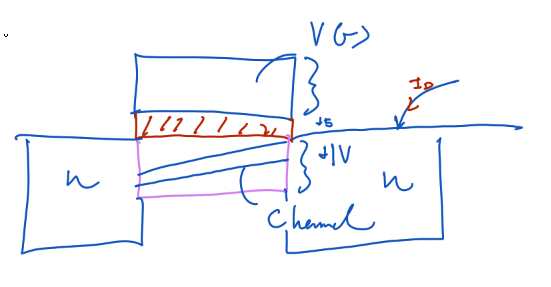 V(→)
I_D
+5
+1V
n
n
Channel